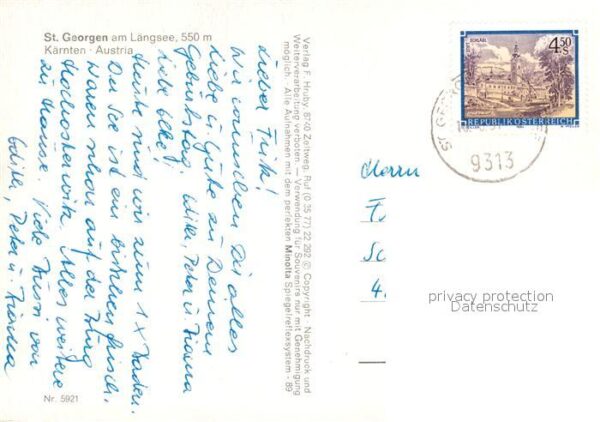 St. Georgen am Längsee, 550 m
Kärnten · Austria
Lieber Fritz!
Wir wünschen Dir alles
Liebe u. Gute zu Deinem
Geburtstag. Willi, Peter u.
Liebe
Heute sind wir zum 1x baden.
Der See ist ein bisschen frisch.
Waren schon auf der Burg
Hochosterwitz. Alles weitere
zu Hause. Viele Bussi von
Willi, Peter u.
Nr. 5921
Verlag F. Hruby, 8740 Zeltweg, Ruf (0 35 77) 22 292 © Copyright Nachdruck und
Weiterverarbeitung verboten. — Verwendung für Souvenirs nur mit Genehmigung
möglich. Alle Aufnahmen mit dem perfekten Minolta Spiegelreflexsystem - 89
STIFT SCHLÄGL
4.50
S
REPUBLIK ÖSTERREICH
ST. GEORGEN
9313
Herrn
F
Sc
4.
privacy protection
Datenschutz